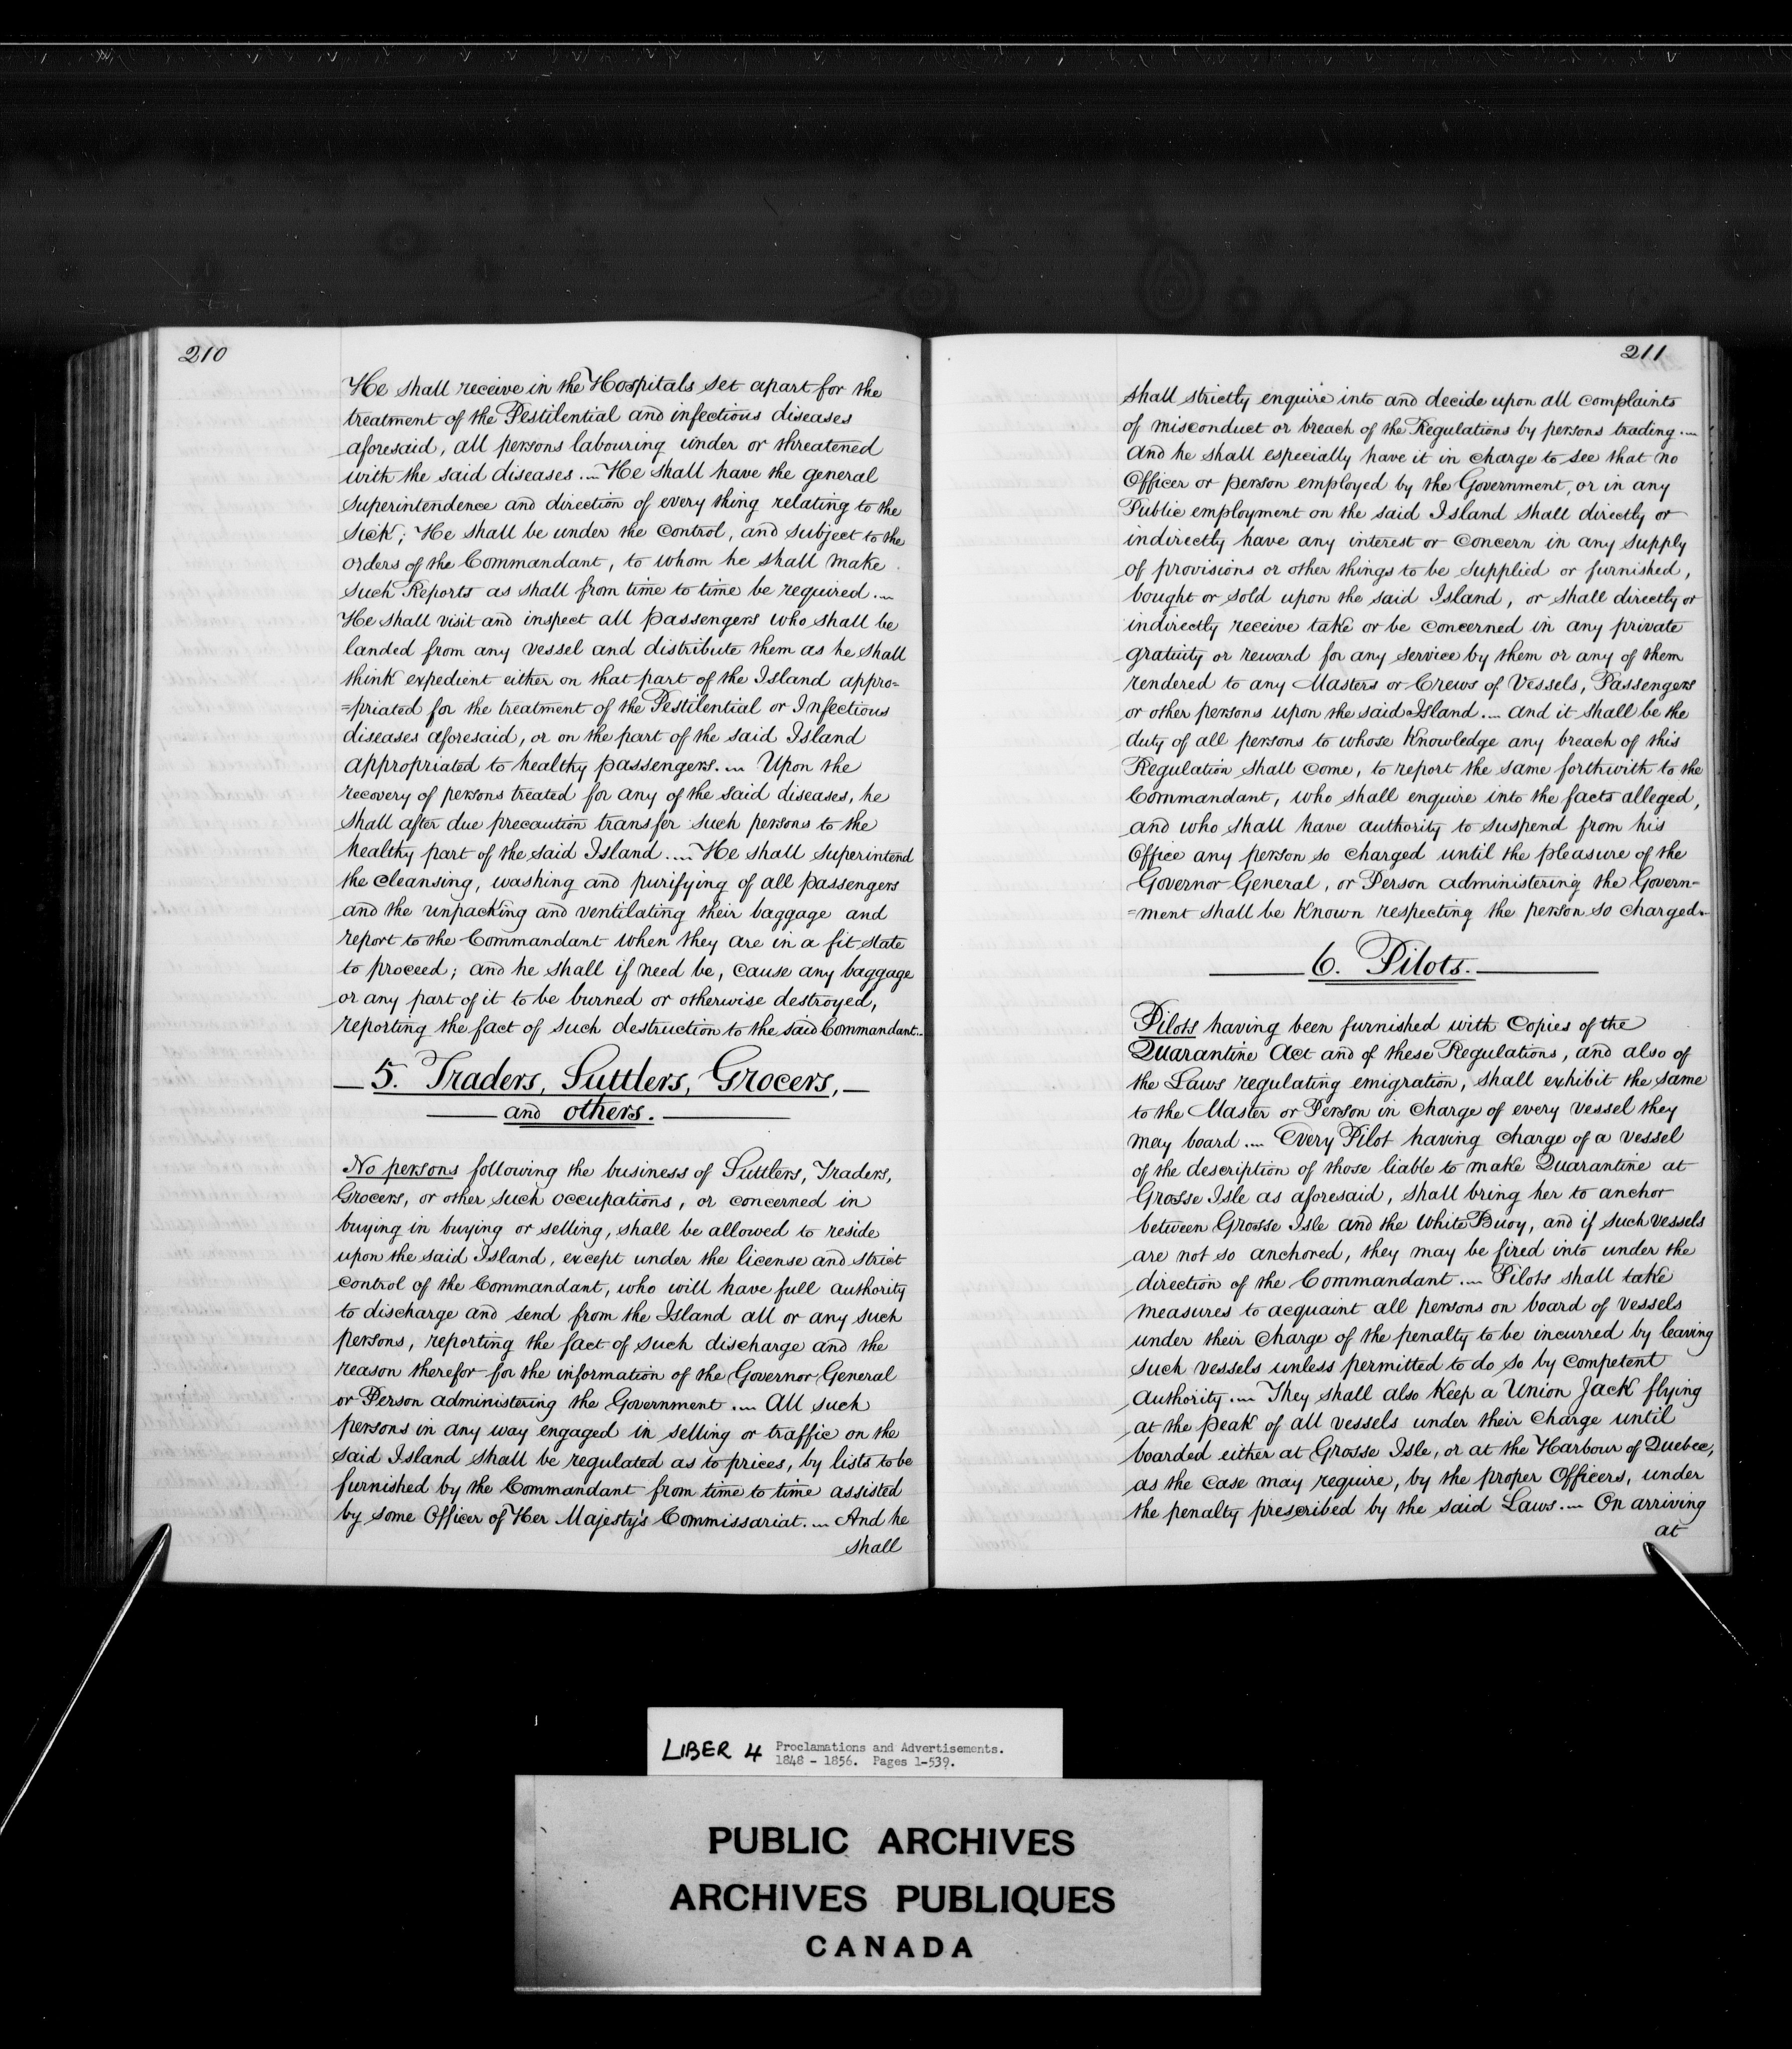 210
He shall receive in the Hospitals set apart for the
treatment of the Pestilential and infectious diseases
aforesaid, all persons labouring under or threatened
with the said diseases .... He shall have the general
superintendence and direction of every thing relating to the
sick; He shall be under the control, and subject to the
orders of the Commandant, to whom he shall make
such Reports as shall from time to time be required ....
He shall visit and inspect all passengers who shall be
landed from any vessel and distribute them as he shall
think expedient either on that part of the Island appro=
=priated for the treatment of the Pestilential or Infectious
diseases aforesaid, or on the part of the said Island
appropriated to healthy passengers .... Upon the
recovery of persons treated for any of the said diseases, he
shall after due precaution transfer such persons to the
healthy part of the said Island .... He shall superintend
the cleansing, washing and purifying of all passengers
and the unpacking and ventilating their baggage and
report to the Commandant when they are in a fit state
to proceed; and he shall if need be, cause any baggage
or any part of it to be burned or otherwise destroyed,
reporting the fact of such destruction to the said Commandant..
5. Traders, Suttlers, Grocers,
and others.
No persons following the business of Suttlers, Traders,
Grocers, or other such occupations, or concerned in
buying in buying or selling, shall be allowed to reside
upon the said Island, except under the license and strict
control of the Commandant, who will have full authority
to discharge and send from the Island all or any such
persons, reporting the fact of such discharge and the
reason therefor for the information of the Governor General
or Person administering the Government .... All such
persons in any way engaged in selling or traffic on the
said Island shall be regulated as to prices, by lists to be
furnished by the Commandant from time to time assisted
by some Officer of Her Majesty's Commissariat .... And he
shall
211
shall strictly enquire into and decide upon all complaints
of misconduct or breach of the Regulations by persons trading ....
And he shall especially have it in charge to see that no
Officer or person employed by the Government, or in any
Public employment on the said Island shall directly or
indirectly have any interest or concern in any supply
of provisions or other things to be supplied or furnished,
bought or sold upon the said Island, or shall directly or
indirectly receive take or be concerned in any private
gratuity or reward for any service by them or any of them
rendered to any Masters or Crews of Vessels, Passengers
or other persons upon the said Island .... and it shall be the
duty of all persons to whose knowledge any breach of this
Regulation shall come, to report the same forthwith to the
Commandant, who shall enquire into the facts alleged,
and who shall have authority to suspend from his
Office any person so charged until the pleasure of the
Governor General, or Person administering the Govern=
=ment shall be known respecting the person so charged.
6. Pilots.
Pilots having been furnished with Copies of the
Quarantine Act and of these Regulations, and also of
the Laws regulating emigration, shall exhibit the same
to the Master or Person in charge of every vessel they
may board .... Every Pilot having charge of a vessel
of the description of those liable to make Quarantine at
Grosse Isle as aforesaid, shall bring her to anchor
between Grosse Isle and the White Buoy, and if such vessels
are not so anchored, they may be fired into under the
direction of the Commandant .... Pilots shall take
measures to acquaint all persons on board of vessels
under their charge of the penalty to be incurred by leaving
such vessels unless permitted to do so by competent
authority .... They shall also keep a Union Jack flying
at the peak of all vessels under their charge until
boarded either at Grosse Isle, or at the Harbour of Quebec,
as the case may require, by the proper Officers, under
the penalty prescribed by the said Laws .... On arriving
at
LIBER 4 Proclamations and Advertisements.
1848 - 1856. Pages 1-539.
PUBLIC ARCHIVES
ARCHIVES PUBLIQUES
CANADA